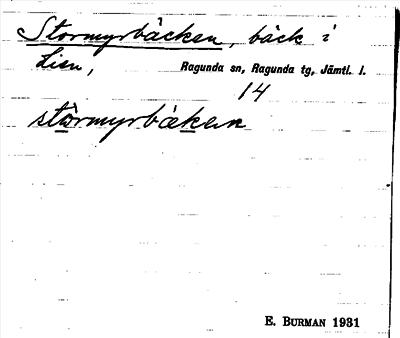 Stormyrbäcken, bäck i
Lien,
Ragunda sn, Ragunda tg, Jämtl. l.
14
stòrmyrbäken
E. BURMAN 1931